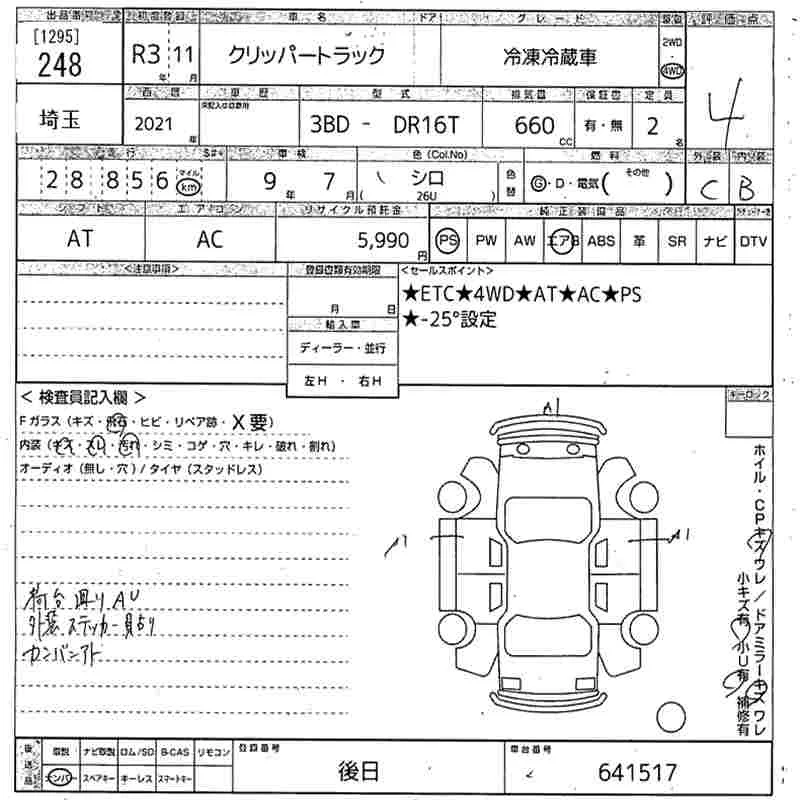 出品番号 初度登録 車名 ドア グレード 駆動 評価点
[1295]
248 R3年 11月 クリッパートラック 冷凍冷蔵車 2WD 4WD 4
西暦 車歴 型式 排気量 保証書 定員
埼玉 2021年 3BD - DR16T 660cc 有・無 2名
走行 車検 色(Col.No) 色替 燃料 外装 内装
28856 マイル km 9年 7月 シロ (26U) G・D・電気(その他) C B
シフト エアコン リサイクル預託金 純正装備品
AT AC 5,990円 PS PW AW エアB ABS 革 SR ナビ DTV
<注意事項> 登録書類有効期限 <セールスポイント>
月 日 ★ETC★4WD★AT★AC★PS
輸入車 ★-25°設定
ディーラー・並行
左H ・ 右H
<検査員記入欄> キーロック
Fガラス(キズ・飛石・ヒビ・リペア跡・X要)
内装(キズ・スレ・汚れ・シミ・コゲ・穴・キレ・破れ・割れ)
オーディオ(無し・穴)/タイヤ(スタッドレス)
A1
A1
A1
荷台周りAU
外装ステッカー貼り
カンバンアト
ホイル・CPキズウレ/ドアミラーキズワレ
小キズ有 小U有 補修有
後送品 取説 ナビ取説 ロム/SD B-CAS リモコン 登録番号 車台番号
ナンバー スペアキー キーレス スマートキー 後日 641517